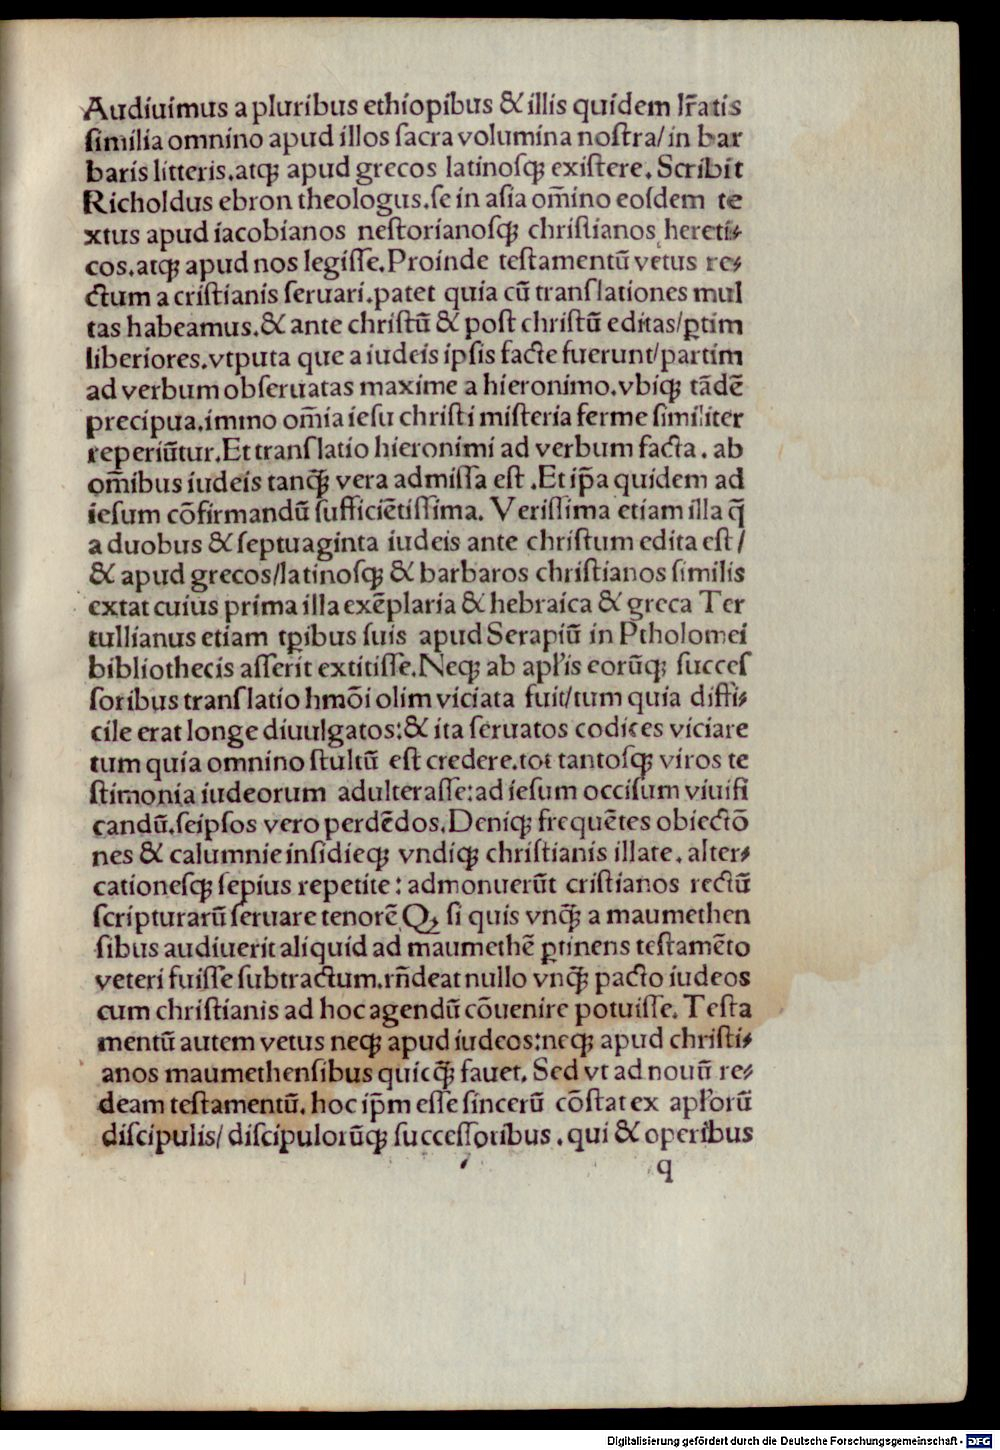 Audiuimus a pluribus ethiopibus & illis quidem lr̄atis
ſimilia omnino apud illos ſacra volumina noſtra/ in bar
baris litteris.atqꝫ apud grecos latinoſqꝫ exiſtere. Scribit
Richoldus ebron theologus.ſe in aſia om̄ino eoſdem te
xtus apud iacobianos neſtorianoſqꝫ chriſtianos hereti⸗
cos.atqꝫ apud nos legiſſe.Proinde teſtamentū vetus re⸗
ctum a criſtianis ſeruari.patet quia cū tranſlationes mul
tas habeamus.& ante chriſtū & poſt chriſtū editas/ꝑtim
liberiores.vtputa que a iudeis ipſis facte fuerunt/partim
ad verbum obſeruatas maxime a hieronimo.vbiqꝫ tādē
precipua.immo om̄ia ieſu chriſti miſteria ferme ſimiliter
reperiūtur.Et tranſlatio hieronimi ad verbum facta. ab
om̄ibus iudeis tanqꝫ̄ vera admiſſa eſt .Et ip̄a quidem ad
ieſum cōfirmandū ſufficiētiſſima. Veriſſima etiam illa q̄
a duobus & ſeptuaginta iudeis ante chriſtum edita eſt/
& apud grecos/latinoſqꝫ & barbaros chriſtianos ſimilis
extat cuius prima illa exēplaria & hebraica & greca Ter
tullianus etiam tꝑibus ſuis apud Serapiū in Ptholomei
bibliothecis aſſerit extitiſſe.Neqꝫ ab apl̄is eorūqꝫ ſucceſ
ſoribus tranſlatio hmōi olim viciata fuit/tum quia diffi⸗
cile erat longe diuulgatos:& ita ſeruatos codices viciare
tum quia omnino ſtultū eſt credere.tot tantoſqꝫ viros te
ſtimonia iudeorum adulteraſſe:ad ieſum occiſum viuifi
candū.ſeipſos vero perdēdos.Deniqꝫ frequētes obiectō
nes & calumnie inſidieqꝫ vndiqꝫ chriſtianis illate. alter⸗
cationeſqꝫ ſepius repetite: admonuerūt criſtianos rectū
ſcripturarū ſeruare tenorē Qꝫ ſi quis vnqꝫ̄ a maumethen
ſibus audiuerit aliquid ad maumethē ꝑtinens teſtamēto
veteri fuiſſe ſubtractum.rn̄deat nullo vnqꝫ̄ pacto iudeos
cum chriſtianis ad hoc agendū cōuenire potuiſſe. Teſta
mentū autem vetus neqꝫ apud iudeos:neqꝫ apud chriſti⸗
anos maumethenſibus quicqꝫ̄ fauet. Sed vt ad nouū re⸗
deam teſtamentū. hoc ip̄m eſſe ſincerū cōſtat ex apl̄orū
diſcipulis/ diſcipulorūqꝫ ſucceſſoribus . qui & operibus
q
Digitalisierung gefördert durch die Deutsche Forschungsgemeinschaft - DFG